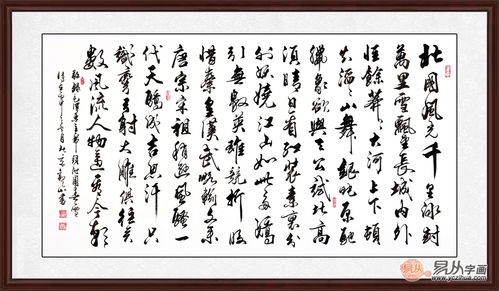 北國風光千里冰封
萬里雪飄望長城内外
惟餘莽〻大河上下頓
失滔〻山舞銀蛇原馳
蠟象欲與天公試比高
須晴日看紅裝素裹分
外妖嬈江山如此多嬌
引無數英雄競折腰
惜秦皇漢武略輸文采
唐宗宋祖稍遜風騷一
代天驕成吉思汗只
識彎弓射大雕俱往矣
數風流人物還看今朝
敬錄毛澤東主席詞沁園春雪
易从字画
www.yczihua.com